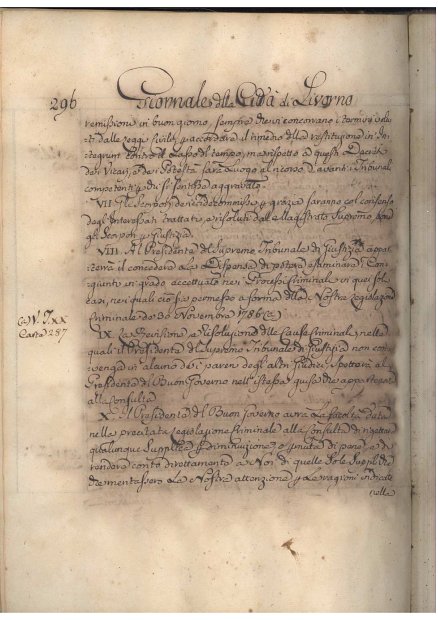 296 Giornale della Città di Livorno
remissione in buon giorno, sempre che vi concorrano i termini
dalle Leggi Civili p accordare il rimedio della restituzione in in=
tegrum contro il Lasso del tempo, in rispetto a questi Decreti
dei Vicarj,
competenti p chi si sentisse aggravato.
VII. Gli Scorporj dei fidecommissi p grazia saranno col consenso
degl'Interessati trattati, e risoluti dal Magistrato Supremo,
gli Scorporj p Giustizia.
VIII. Al Presidente del Supremo Tribunale di Giustizia appar=
terrà il concedere la Dispensa di potere esaminare i Con=
giunti in grado eccettuato nei Processi Criminali in quei soli
casi, nei quali ciò sia permesso a forma della Nostra Legislazione
Criminale de 30. Novembre 1786
Carta 287
IX. La Revisione, e Risoluzione delle Cause Criminali, nelle
quali il Presidente del Supremo Tribunale di Giustizia non con=
venga in alcuno dei pareri degli altri Giudici, spetterà al
Presidente del Buon Governo nell'istessa guisa che apparteneva
alla Consulta.
X. Il Presidente del Buon Governo avrà la facoltà data
nella precitata Legislazione Criminale alla Consulta di rigettare
qualunque Supplica p diminuzione, o p mutar di pene, e di
rendere conto direttamente a Noi di quelle sole Suppliche
che meritassero la Nostra attenzione p le ragioni indicate
nella